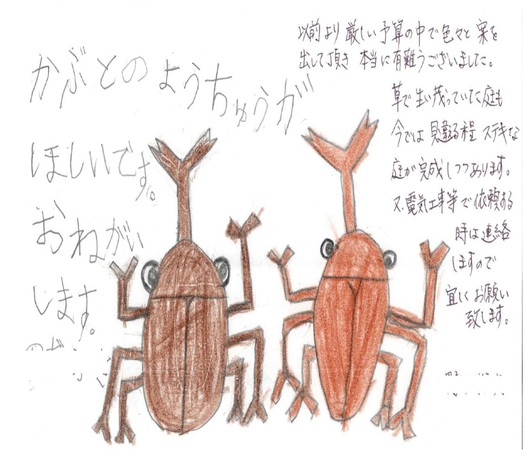 かぶとのようちゅうが
ほしいです。
おねがい
します。
以前より厳しい予算の中で色々と案を
出して頂き本当に有難うございました。
草で生い茂っていた庭も
今では見違る程ステキな
庭が完成しつつあります。
又、電気工事等で依頼する
時は連絡
しますので
宜しくお願い
致します。